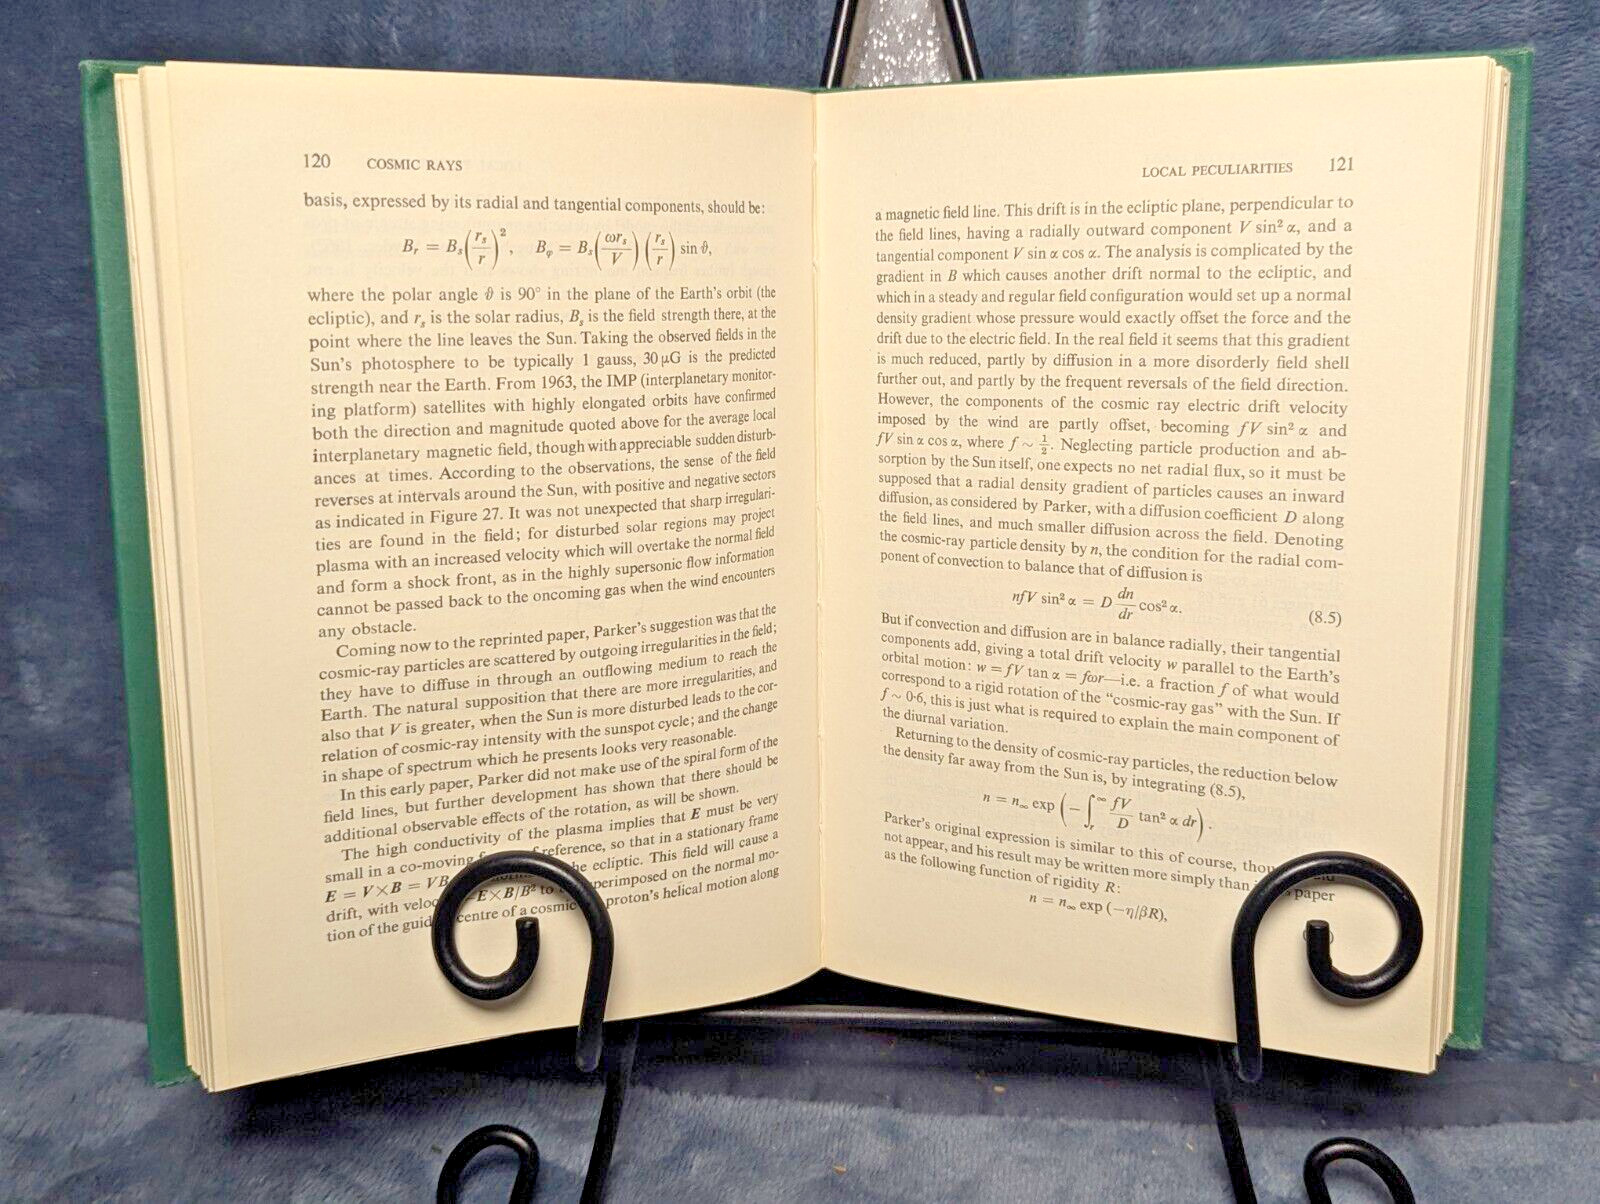 120 COSMIC RAYS
basis, expressed by its radial and tangential components, should be:
B_r = B_s(r_s/r)², B_φ = B_s(ωr_s/V)(r_s/r) sin ϑ,
where the polar angle ϑ is 90° in the plane of the Earth's orbit (the
ecliptic), and r_s is the solar radius, B_s is the field strength there, at the
point where the line leaves the Sun. Taking the observed fields in the
Sun's photosphere to be typically 1 gauss, 30 μG is the predicted
strength near the Earth. From 1963, the IMP (interplanetary monitor-
ing platform) satellites with highly elongated orbits have confirmed
both the direction and magnitude quoted above for the average local
interplanetary magnetic field, though with appreciable sudden disturb-
ances at times. According to the observations, the sense of the field
reverses at intervals around the Sun, with positive and negative sectors
as indicated in Figure 27. It was not unexpected that sharp irregulari-
ties are found in the field; for disturbed solar regions may project
plasma with an increased velocity which will overtake the normal field
and form a shock front, as in the highly supersonic flow information
cannot be passed back to the oncoming gas when the wind encounters
any obstacle.
Coming now to the reprinted paper, Parker's suggestion was that the
cosmic-ray particles are scattered by outgoing irregularities in the field;
they have to diffuse in through an outflowing medium to reach the
Earth. The natural supposition that there are more irregularities, and
also that V is greater, when the Sun is more disturbed leads to the cor-
relation of cosmic-ray intensity with the sunspot cycle; and the change
in shape of spectrum which he presents looks very reasonable.
In this early paper, Parker did not make use of the spiral form of the
field lines, but further development has shown that there should be
additional observable effects of the rotation, as will be shown.
The high conductivity of the plasma implies that E must be very
small in a co-moving reference, so that in a stationary frame
E = V×B = VB the ecliptic. This field will cause a
drift, with veloc E×B/B² to superimposed on the normal mo-
tion of the guid centre of a cosmic proton's helical motion along
LOCAL PECULIARITIES 121
a magnetic field line. This drift is in the ecliptic plane, perpendicular to
the field lines, having a radially outward component V sin² α, and a
tangential component V sin α cos α. The analysis is complicated by the
gradient in B which causes another drift normal to the ecliptic, and
which in a steady and regular field configuration would set up a normal
density gradient whose pressure would exactly offset the force and the
drift due to the electric field. In the real field it seems that this gradient
is much reduced, partly by diffusion in a more disorderly field shell
further out, and partly by the frequent reversals of the field direction.
However, the components of the cosmic ray electric drift velocity
imposed by the wind are partly offset, becoming fV sin² α and
fV sin α cos α, where f ~ ½. Neglecting particle production and ab-
sorption by the Sun itself, one expects no net radial flux, so it must be
supposed that a radial density gradient of particles causes an inward
diffusion, as considered by Parker, with a diffusion coefficient D along
the field lines, and much smaller diffusion across the field. Denoting
the cosmic-ray particle density by n, the condition for the radial com-
ponent of convection to balance that of diffusion is
nfV sin² α = D dn/dr cos² α. (8.5)
But if convection and diffusion are in balance radially, their tangential
components add, giving a total drift velocity w parallel to the Earth's
orbital motion: w = fV tan α = fωr—i.e. a fraction f of what would
correspond to a rigid rotation of the "cosmic-ray gas" with the Sun. If
f ~ 0·6, this is just what is required to explain the main component of
the diurnal variation.
Returning to the density of cosmic-ray particles, the reduction below
the density far away from the Sun is, by integrating (8.5),
n = n_∞ exp (−∫_r^∞ fV/D tan² α dr).
Parker's original expression is similar to this of course,
not appear, and his result may be written more simply than paper
as the following function of rigidity R:
n = n_∞ exp (−η/βR),